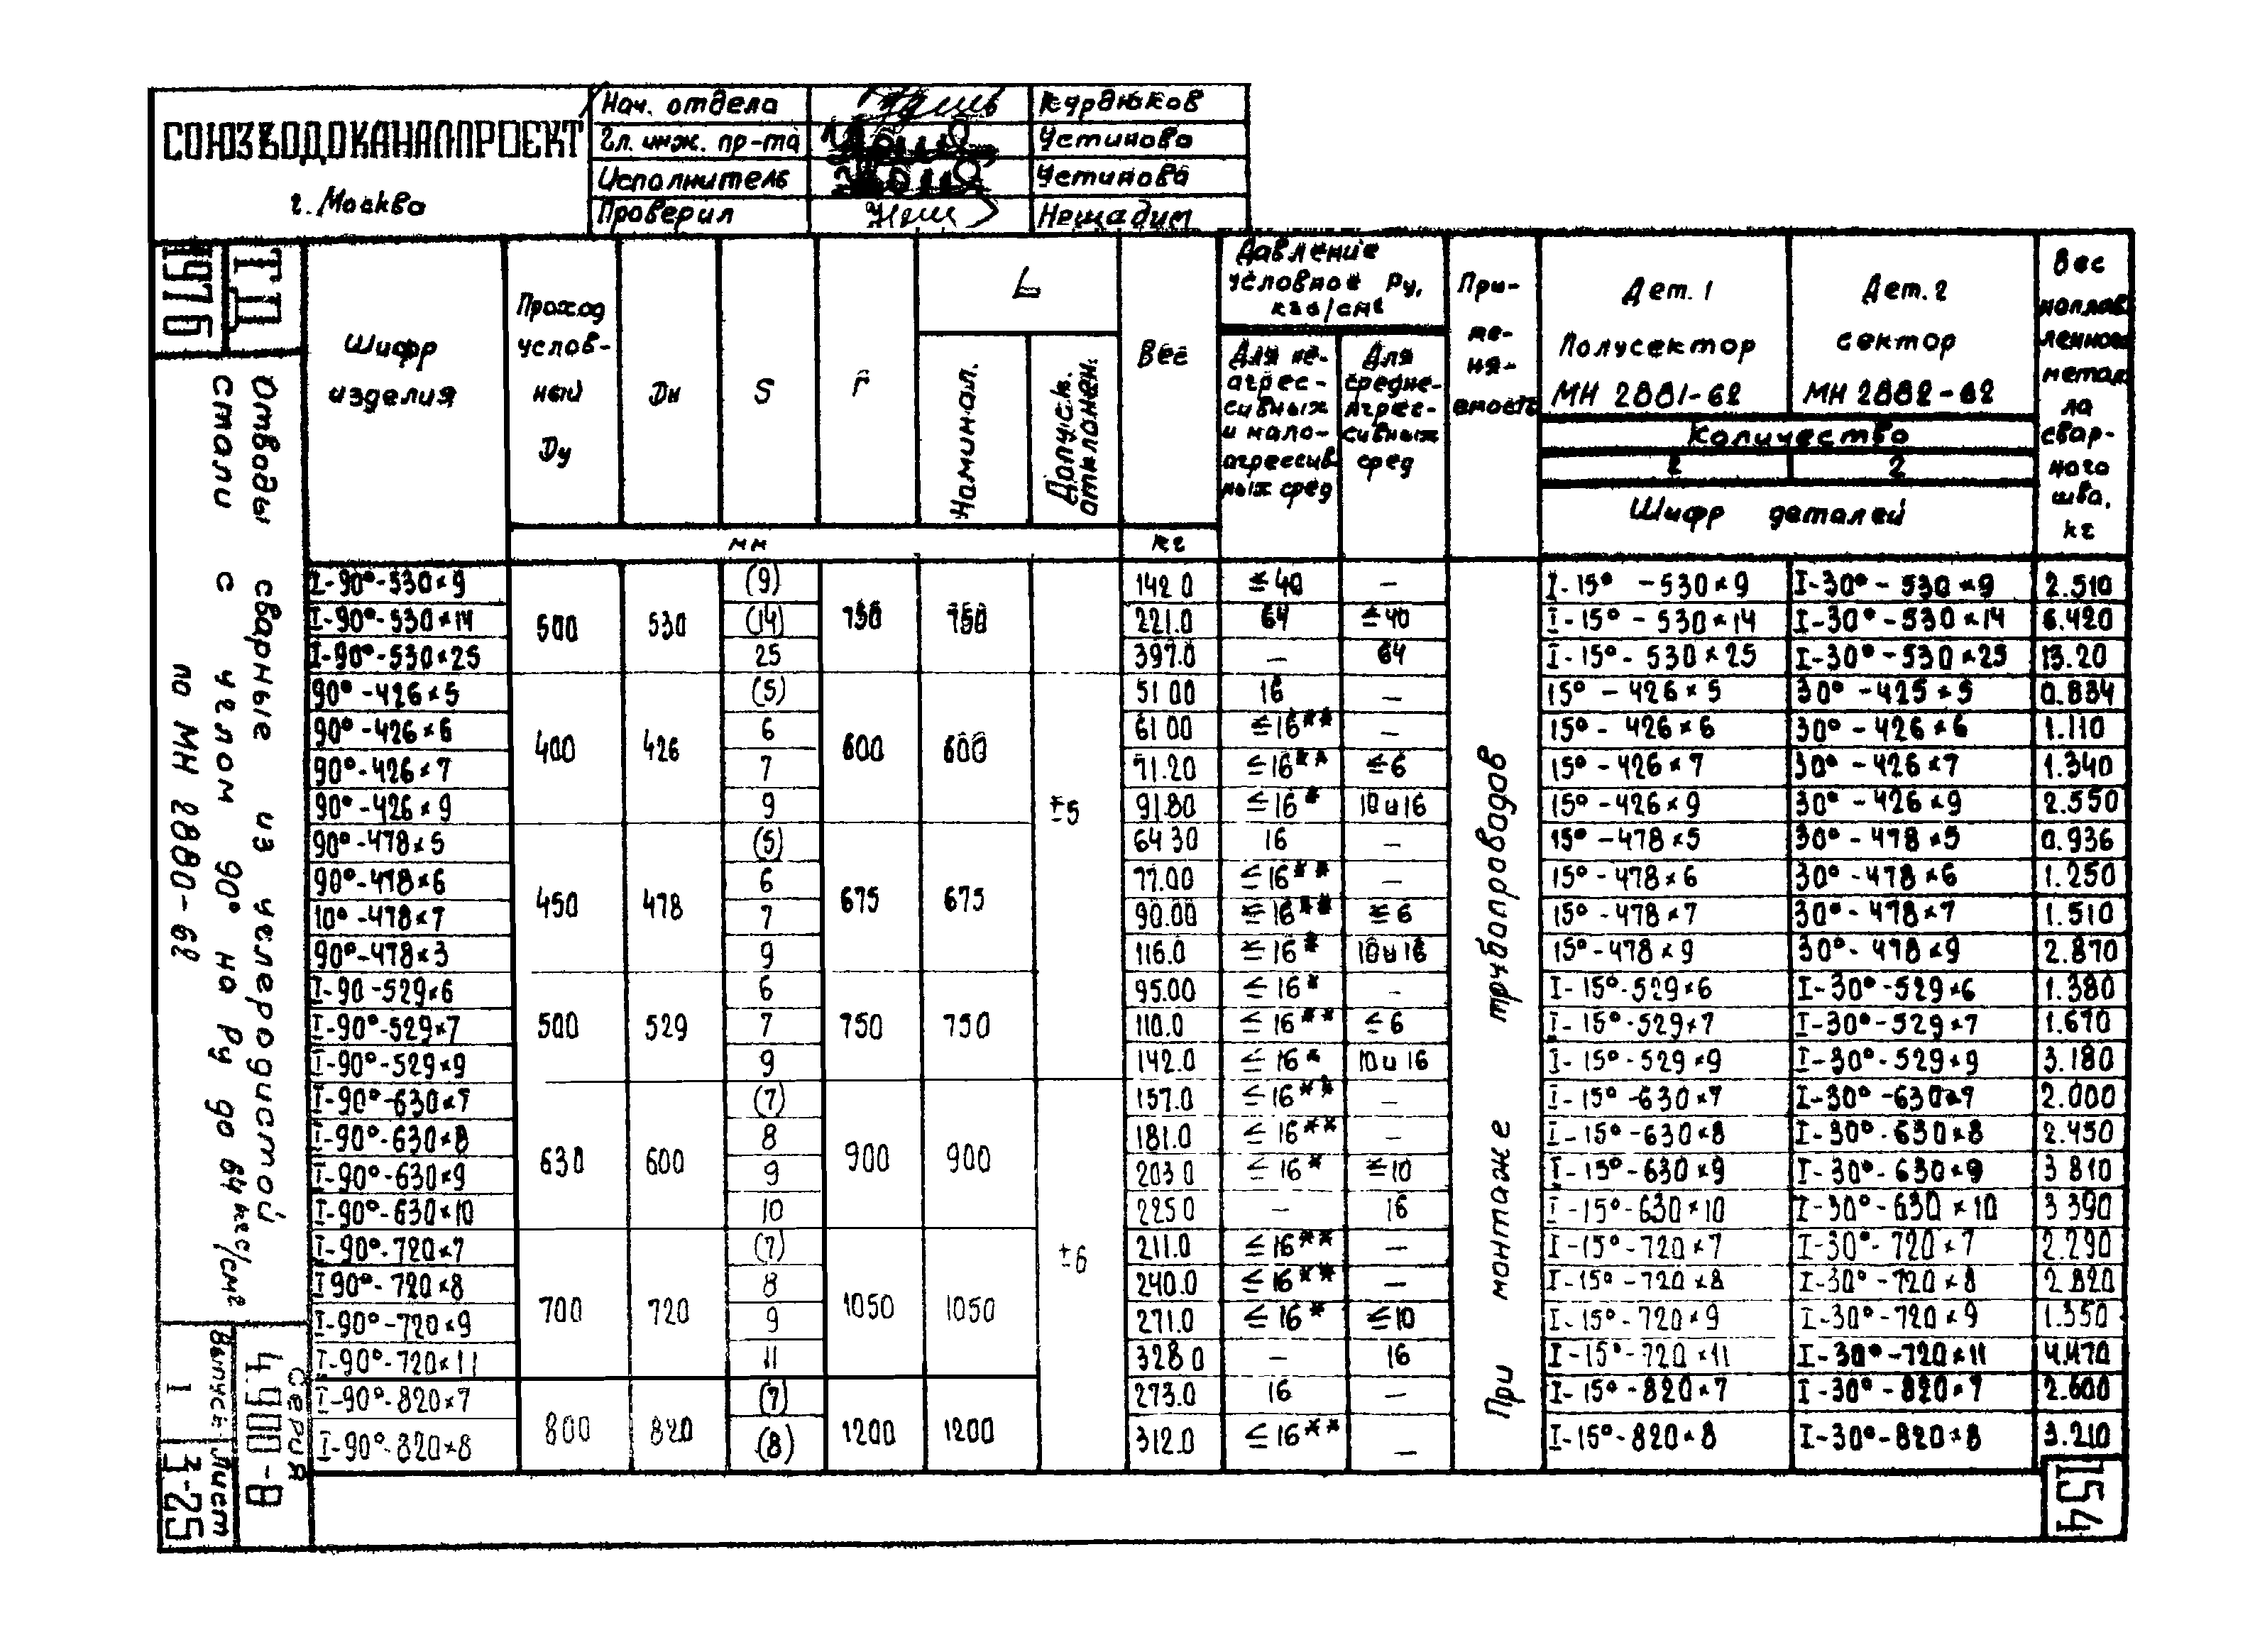 СОЮЗВОДОКАНАЛПРОЕКТ
г. Москва
Нач. отдела Курдюков
Гл. инж. пр-та Устинова
Исполнитель Устинова
Проверил Нещадим
ТД
1976
Отводы сварные из углеродистой
стали с углом 90° на Ру до 64 кгс/см²
по МН 2880-62
Серия
4.900-8
Выпуск Лист
1 3-25
Шифр
изделия
Проход
услов-
ный
Dy
Dн
S
r
L
Номинал.
Допуск.
отклонен.
Вес
Давление
условное Ру,
кгс/см²
Для не-
агрес-
сивных
и мало-
агрессив
ных сред
Для
средне-
агрес-
сивных
сред
При-
ме-
няе-
емость
Дет. 1
Полусектор
МН 2881-62
Дет. 2
сектор
МН 2882-62
Количество
2 2
Шифр деталей
Вес
наплав
ленного
метал
ла
свар-
ного
шва,
кг
мм кг
I-90°-530×9 500 530 (9) 750 750 142 0 ≤40 – I-15° -530×9 I-30°-530×9 2.510
I-90°-530×14 (14) 221.0 64 ≤40 I-15° - 530×14 I-30°-530×14 6.420
I-90°-530×25 25 397.0 – 64 I-15°- 530×25 I-30°-530×25 13.20
90°-426×5 400 426 (5) 600 600 ±5 51 00 16 – 15° - 426×5 30° -425×5 0.834
90°-426×6 6 61 00 ≤16** – 15° - 426×6 30° - 426×6 1.110
90°-426×7 7 71.20 ≤16** ≤6 15° -426×7 30° -426×7 1.340
90°-426×9 9 91.80 ≤16* 10 и 16 15° -426×9 30° -426×9 2.550
90°-478×5 450 478 (5) 675 675 64 30 16 – 15° -478×5 30° - 478×5 0.936
90°-478×6 6 77.00 ≤16** – 15° -478×6 30° -478×6 1.250
10°-478×7 7 90.00 ≤16** ≤6 15° -478×7 30°- 478×7 1.510
90°-478×3 9 116.0 ≤16* 10 и 16 15°-478×9 30°- 478×9 2.870
I-90 -529×6 500 529 6 750 750 95.00 ≤16* – I-15°-529×6 I-30°-529×6 1.380
I-90°-529×7 7 110.0 ≤16** ≤6 I-15°-529×7 I-30°-529×7 1.670
I-90°-529×9 9 142.0 ≤16* 10 и 16 I-15°-529×9 I-30°-529×9 3.180
I-90°-630×7 630 600 (7) 900 900 ±6 157.0 ≤16** – I-15° -630×7 I-30° -630×7 2.000
I-90°-630×8 8 181.0 ≤16** – I-15° -630×8 I-30°-630×8 2.450
I-90°-630×9 9 203 0 ≤16* ≤10 I-15°-630×9 I-30°-630×9 3 810
I-90°-630×10 10 225 0 – 16 I-15°-630×10 I-30°-630×10 3 390
I-90°-720×7 700 720 (7) 1050 1050 211.0 ≤16** – I-15°-720×7 I-30°-720×7 2.290
I 90°-720×8 8 240.0 ≤16** – I-15° -720×8 I-30° -720×8 2.820
I-90°-720×9 9 271.0 ≤16* ≤10 I-15°-720×9 I-30°-720×9 1.350
I-90°-720×11 11 328 0 – 16 I-15°-720×11 I-30°-720×11 4.470
I-90°-820×7 800 820 (7) 1200 1200 273.0 16 – I-15°-820×7 I-30°-820×7 2.600
I-90°-820×8 (8) 312.0 ≤16** – I-15°-820×8 I-30°-820×8 3.210
При монтаже трубопроводов
154